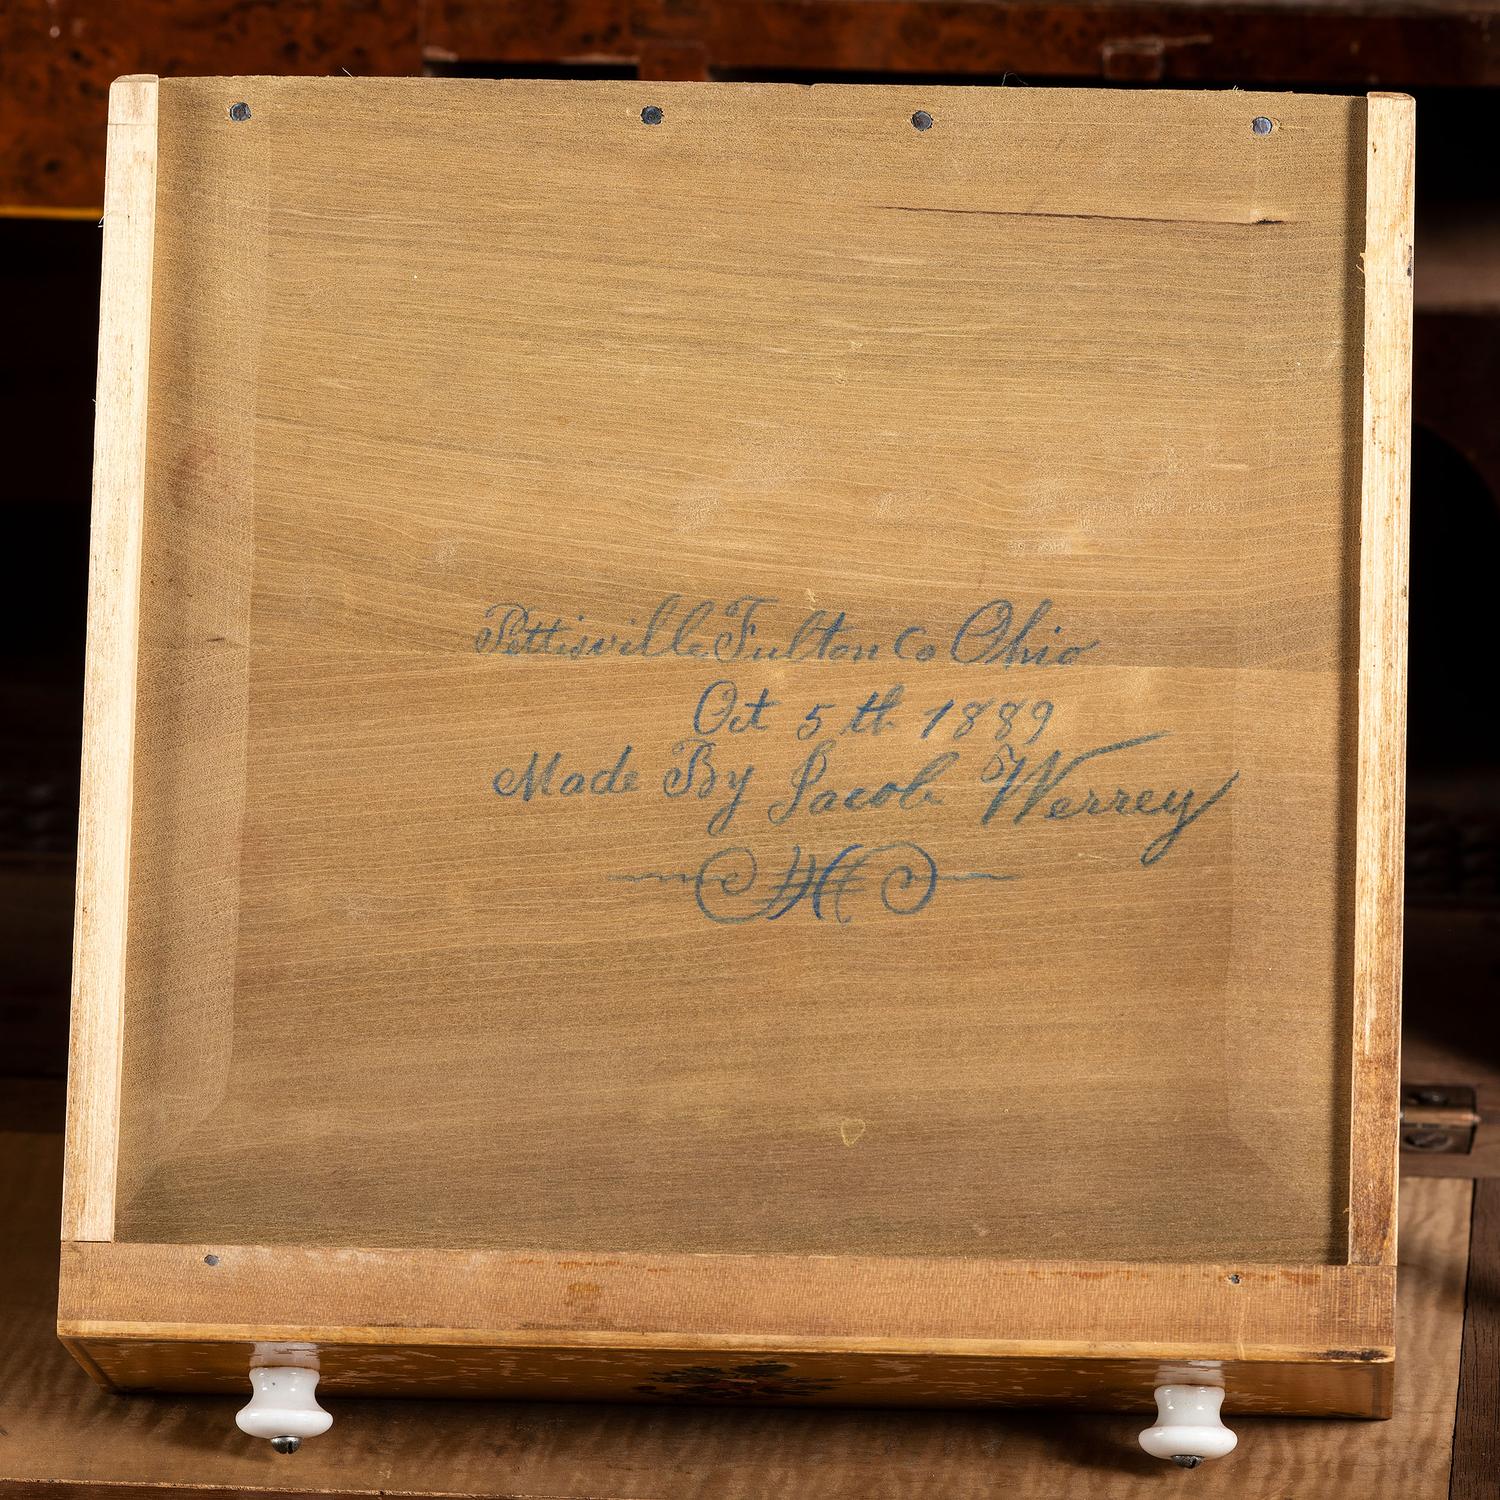 Pettisville Fulton Co Ohio
Oct 5th 1889
Made By Jacob Werrey